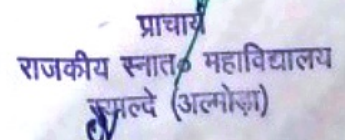 प्राचार्य
राजकीय स्नात० महाविद्यालय
स्याल्दे (अल्मोड़ा)